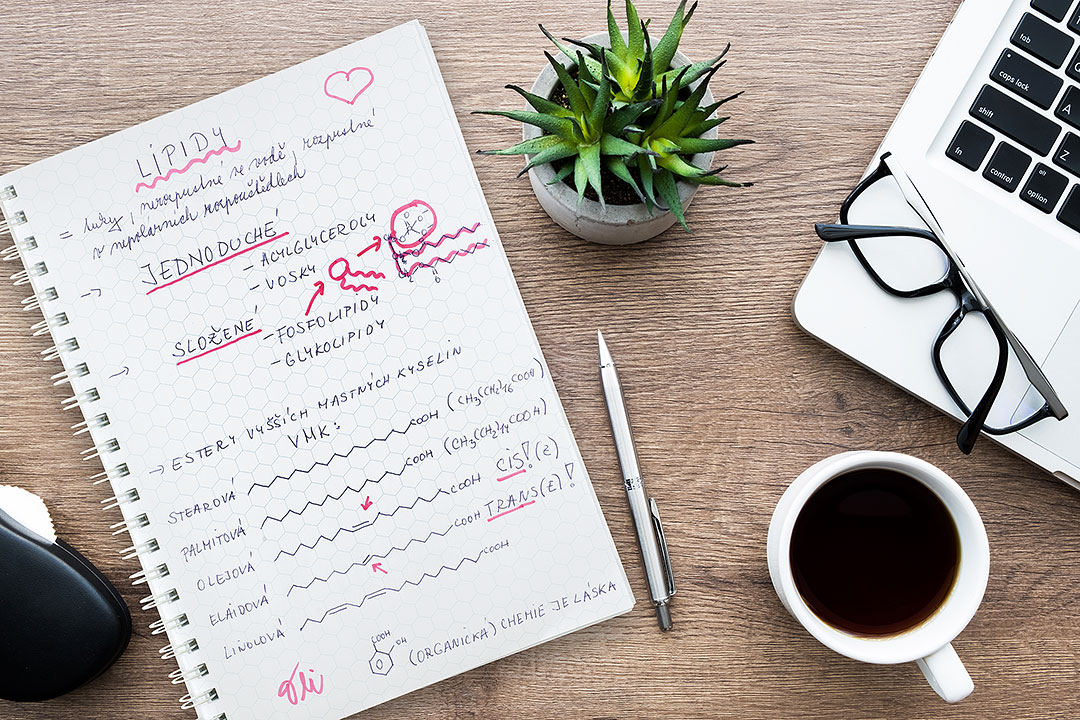 LÍPIDY
= tuky, nerozpustné ve vodě, rozpustné
v nepolárních rozpouštědlech
→ JEDNODUCHÉ
- ACYLGLYCEROLY
- VOSKY
→ SLOŽENÉ - FOSFOLIPIDY
- GLYKOLIPIDY
→ ESTERY VYŠŠÍCH MASTNÝCH KYSELIN
VMK:
STEAROVÁ COOH (CH3(CH2)16COOH)
PALMITOVÁ COOH (CH3(CH2)14COOH)
OLEJOVÁ COOH CIS! (Z)
ELAIDOVÁ COOH TRANS (E)!
LINOLOVÁ COOH
COOH
OH
(ORGANICKÁ) CHEMIE JE LÁSKA
tab
caps lock
shift
Z
fn
control
alt
option